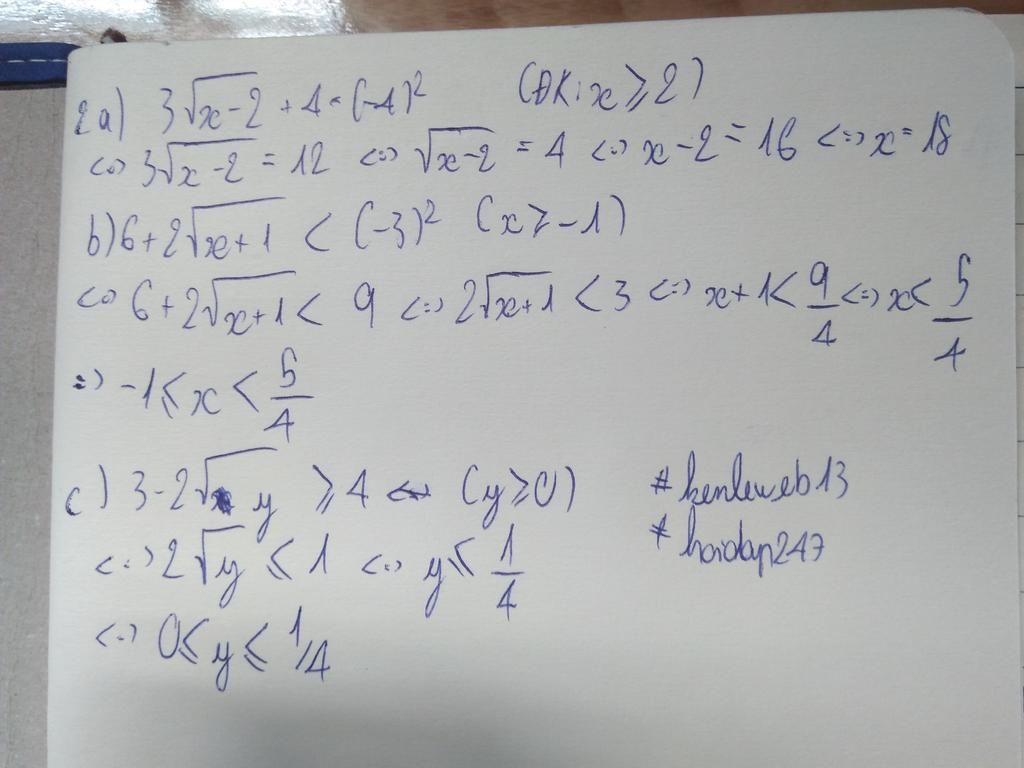 2a) 3√(x-2) + 4 = (-4)² (ĐK: x ≥ 2)
<=> 3√(x-2) = 12 <=> √(x-2) = 4 <=> x-2 = 16 <=> x = 18
b) 6+2√(x+1) < (-3)² (x ≥ -1)
<=> 6+2√(x+1) < 9 <=> 2√(x+1) < 3 <=> x+1 < 9/4 <=> x < 5/4
=> -1 ≤ x < 5/4
c) 3-2√y ≥ 4 <=> (y ≥ 0)
<=> 2√y ≤ 1 <=> y ≤ 1/4
<=> 0 ≤ y ≤ 1/4
# kenleweb13
# hoidap247